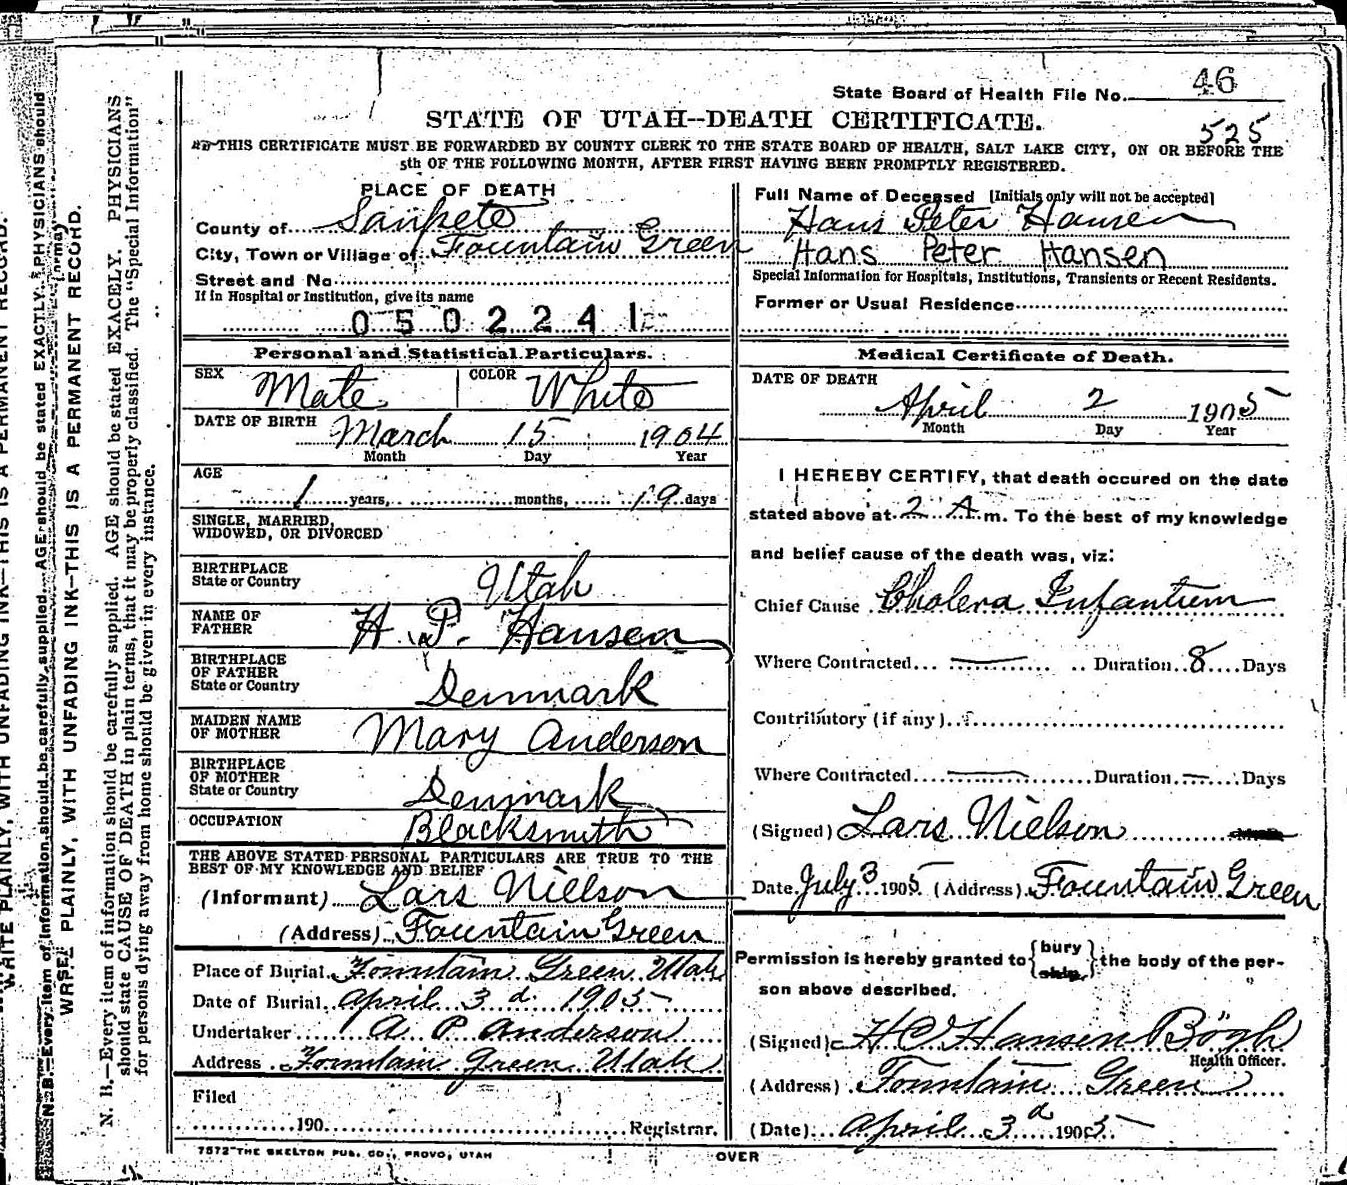 State Board of Health File No. 46
STATE OF UTAH--DEATH CERTIFICATE.
525
THIS CERTIFICATE MUST BE FORWARDED BY COUNTY CLERK TO THE STATE BOARD OF HEALTH, SALT LAKE CITY, ON OR BEFORE THE
5th OF THE FOLLOWING MONTH, AFTER FIRST HAVING BEEN PROMPTLY REGISTERED.
PLACE OF DEATH
County of Sanpete
City, Town or Village of Fountain Green
Street and No.
If in Hospital or Institution, give its name
0502241
Personal and Statistical Particulars.
SEX Male COLOR White
DATE OF BIRTH March 15 1904
Month Day Year
AGE
1 years, months, 19 days
SINGLE, MARRIED,
WIDOWED, OR DIVORCED
BIRTHPLACE
State or Country Utah
NAME OF
FATHER H. P. Hansen
BIRTHPLACE
OF FATHER
State or Country Denmark
MAIDEN NAME
OF MOTHER Mary Anderson
BIRTHPLACE
OF MOTHER
State or Country Denmark
OCCUPATION Blacksmith
THE ABOVE STATED PERSONAL PARTICULARS ARE TRUE TO THE
BEST OF MY KNOWLEDGE AND BELIEF
(Informant) Lars Nielson
(Address) Fountain Green
Place of Burial Fountain Green Utah
Date of Burial April 3d. 1905
Undertaker A. P. Anderson
Address Fountain Green Utah
Filed
190 Registrar.
7572 THE SKELTON PUB. CO., PROVO, UTAH
Full Name of Deceased [Initials only will not be accepted]
Hans Peter Hansen
Hans Peter Hansen
Special Information for Hospitals, Institutions, Transients or Recent Residents.
Former or Usual Residence
Medical Certificate of Death.
DATE OF DEATH
April 2 1905
Month Day Year
I HEREBY CERTIFY, that death occured on the date
stated above at 2 A m. To the best of my knowledge
and belief cause of the death was, viz:
Chief Cause Cholera Infantum
Where Contracted Duration 8 Days
Contributory (if any)
Where Contracted Duration Days
(Signed) Lars Nielson
Date July 3 1905 (Address) Fountain Green
Permission is hereby granted to {bury ship} the body of the per-
son above described.
(Signed) H C Hansen Bögh
Health Officer.
(Address) Fountain Green
(Date) April 3d 1905
OVER
N. B.—Every item of information should be carefully supplied. AGE should be stated EXACELY. PHYSICIANS
should state CAUSE OF DEATH in plain terms, that it may be properly classified. The "Special Information"
for persons dying away from home should be given in every instance.
PLAINLY, WITH UNFADING INK—THIS IS A PERMANENT RECORD.
N. B.—Every item of information should be carefully supplied. AGE should be stated EXACTLY. PHYSICIANS should
WRITE PLAINLY, WITH UNFADING INK—THIS IS A PERMANENT RECORD.